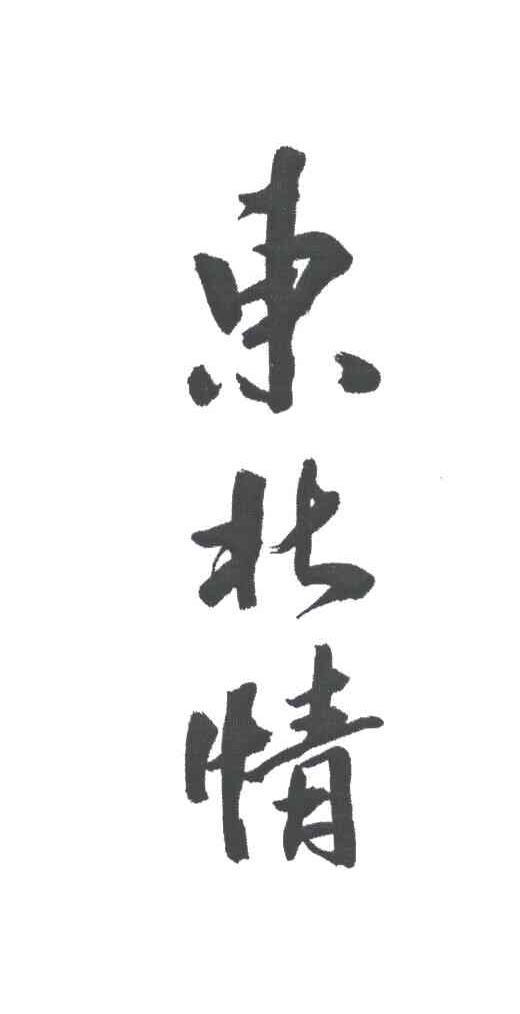 東北情